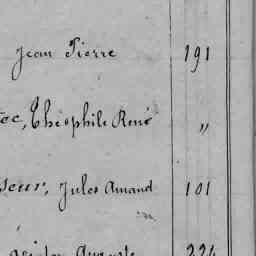 Jean Pierre 191
ec, Théophile René "
seur, Jules Amand 101
Auguste 224